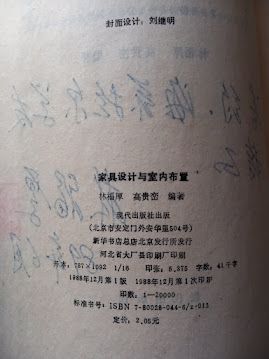 封面设计：刘继明
家具设计与室内布置
林福厚 高贵峦 编著
现代出版社出版
（北京市安定门外安华里504号）
新华书店总店北京发行所发行
河北省大厂县印刷厂印刷
开本：787×1092 1/16 印张：5.375 字数：41千字
1988年12月第1版 1988年12月第1次印刷
印数：1—20000
标准书号：ISBN 7-80028-044-6/z·013
定价：2.05元